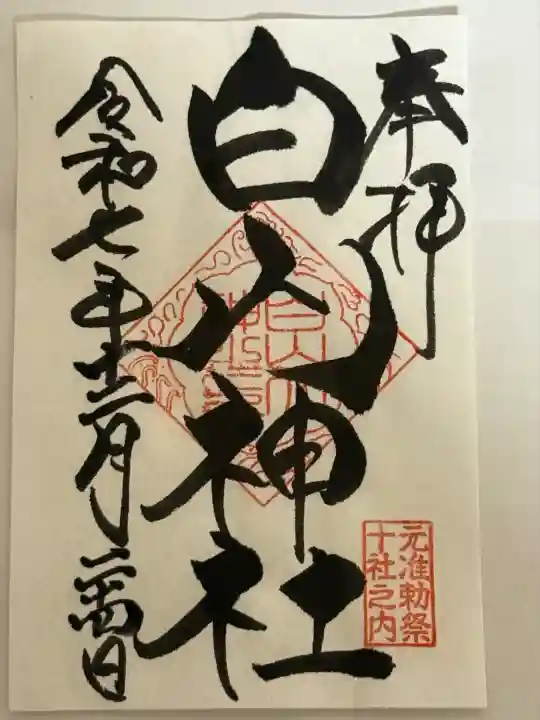 奉拝
白山神社
令和七年十二月二十四日
元准勅祭
十社之内